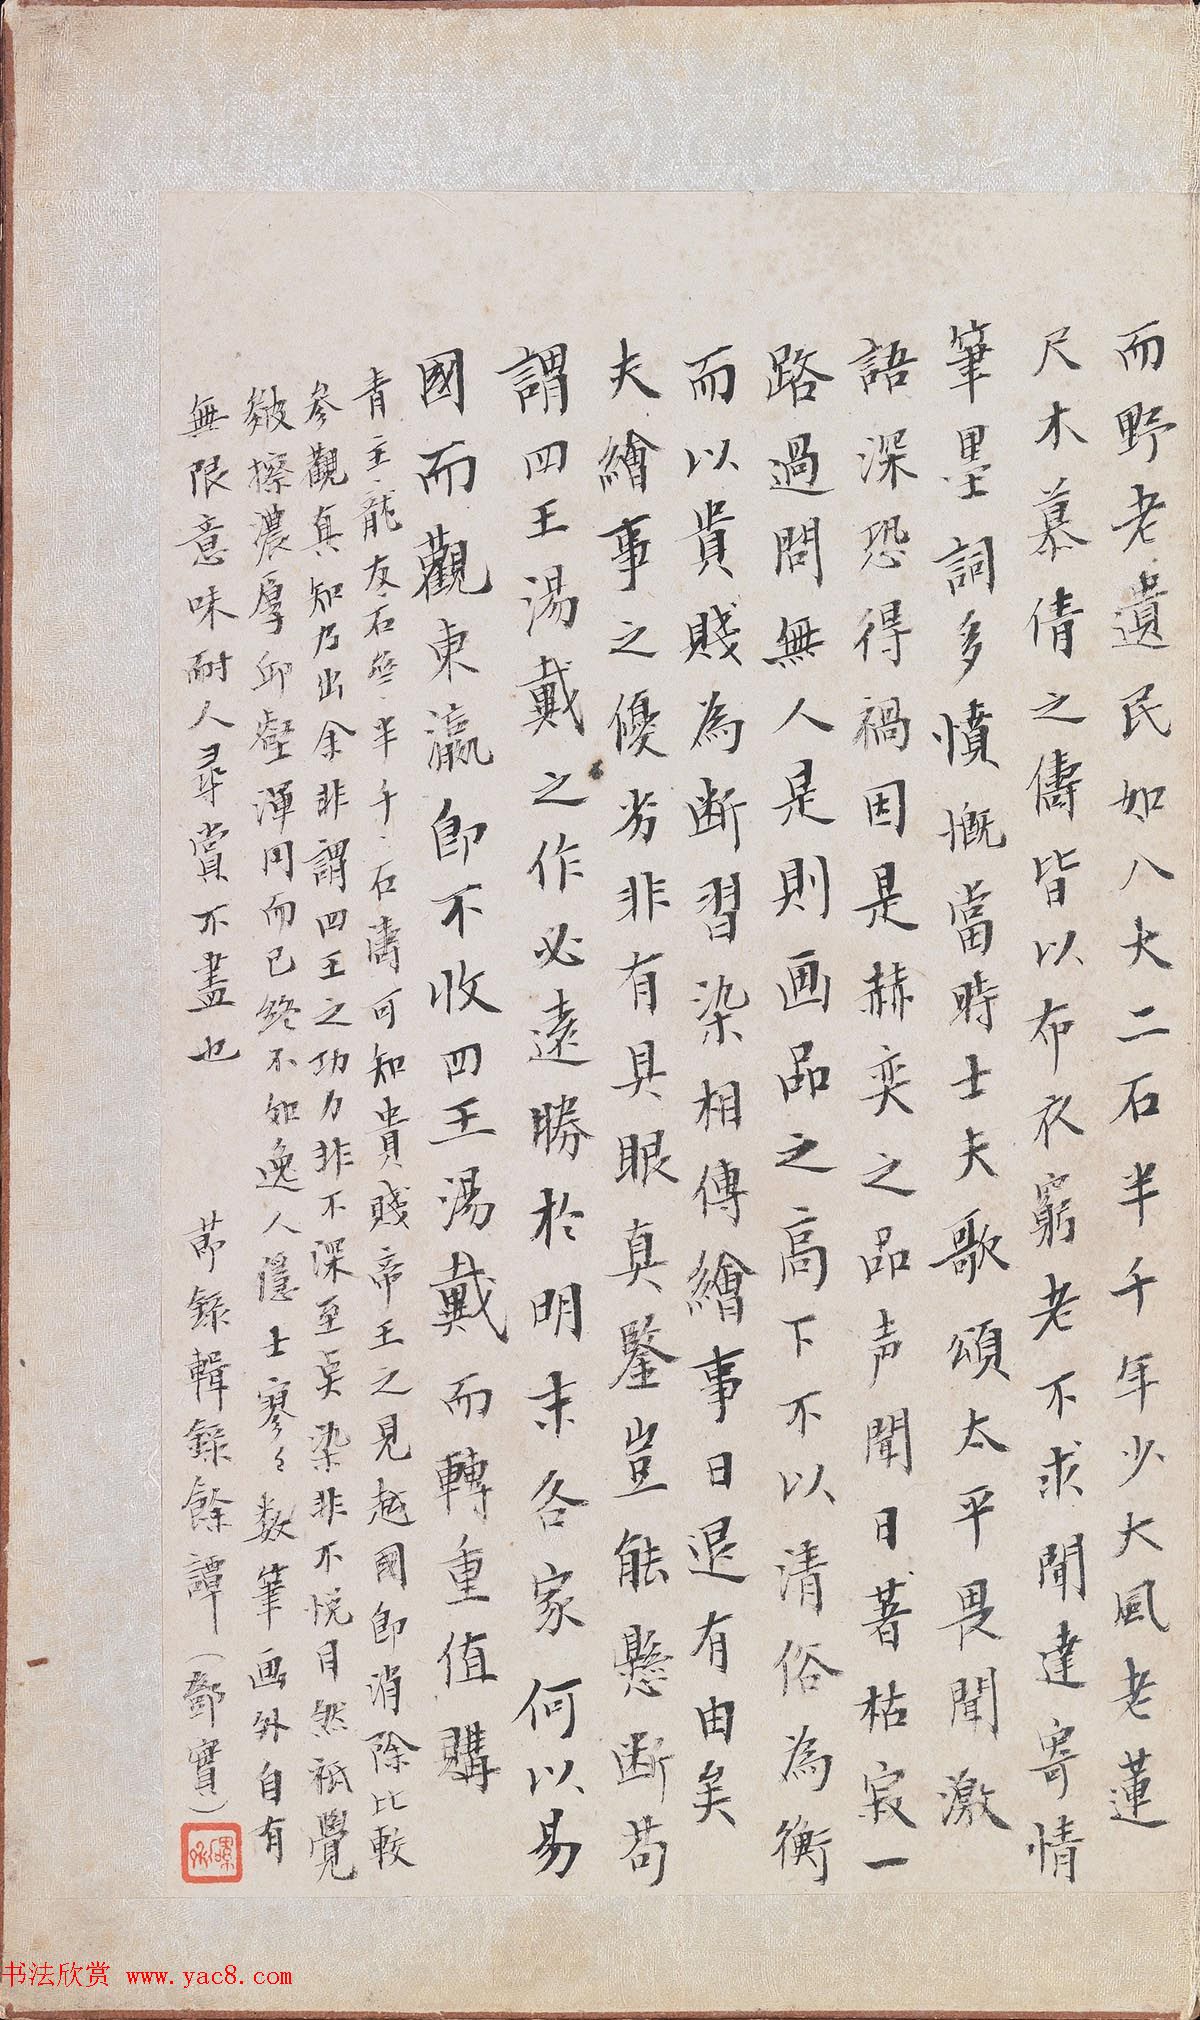 而野老遺民如八大二石半千年少大風老蓮
尺木慕倩之儔皆以布衣窮老不求聞達寄情
筆墨詞多憤慨當時士夫歌頌太平畏聞激
語深恐得禍因是赫奕之品声聞日著枯寂一
路過問無人是則画品之高下不以清俗為衡
而以貴賤為断習染相傳繪事日退有由矣
夫繪事之優劣非有具眼真鑒豈能懸断苟
謂四王湯戴之作必遠勝於明末各家何以易
國而觀東瀛即不收四王湯戴而轉重值購
青主、龍友、石谿、半千、石濤可知貴賤帝王之見越國即消除比較
參觀真知乃出余非謂四王之功力非不深至奐染非不悦目然祗覺
皴擦濃厚邱壑渾同而已終不如逸人隱士寥々数筆画外自有
無限意味耐人尋賞不盡也　　節錄輯錄餘譚（鄧實）
书法欣赏 www.yac8.com